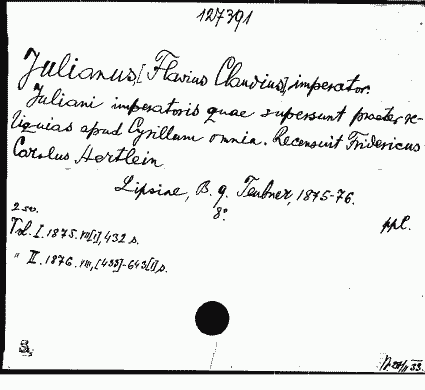 127391
Julianus, [Flavius Claudius], imperator.
Juliani imperatoris quae supersunt praeter re-
liquias apud Cyrillum omnia. Recensuit Fridericus
Carolus Hertlein
Lipsiae, B. g. Teubner, 1875-76.
8°
ppl.
2 sv.
Tol. I. 1875. VIII[I], 432 s.
" II. 1876. VIII, [433]-643[I] s.